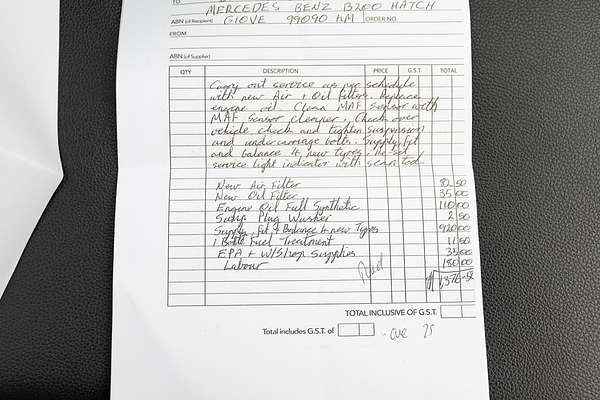 TO MERCEDES BENZ B200 HATCH
ABN (of Recipient) 99090 KM ORDER NO.
FROM
ABN (of Supplier)
QTY DESCRIPTION PRICE G.S.T. TOTAL
Carry out service as per schedule
with new Air + Oil filters. Replace
engine oil. Clean MAF sensor with
MAF sensor cleaner. Check over
vehicle check and tighten suspension
and undercarriage bolts. Supply, fit
and balance 4 new Tyres. Re set
service light indicator with scan tool.
New Air Filter 82 50
New Oil Filter 35 00
Engine Oil Full Synthetic 110 00
Sump Plug Washer 2 50
Supply, fit & Balance 4 new Tyres 920 00
1 Bottle Fuel Treatment 11 50
EPA + W/Shop Supplies 35 00
Labour 180 00
Paid 1,376-50
TOTAL INCLUSIVE OF G.S.T.
Total includes G.S.T. of
25